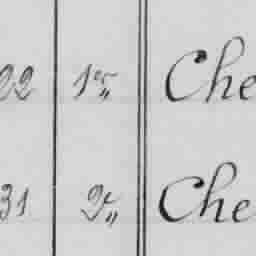 22 1er Che
31 2e Che